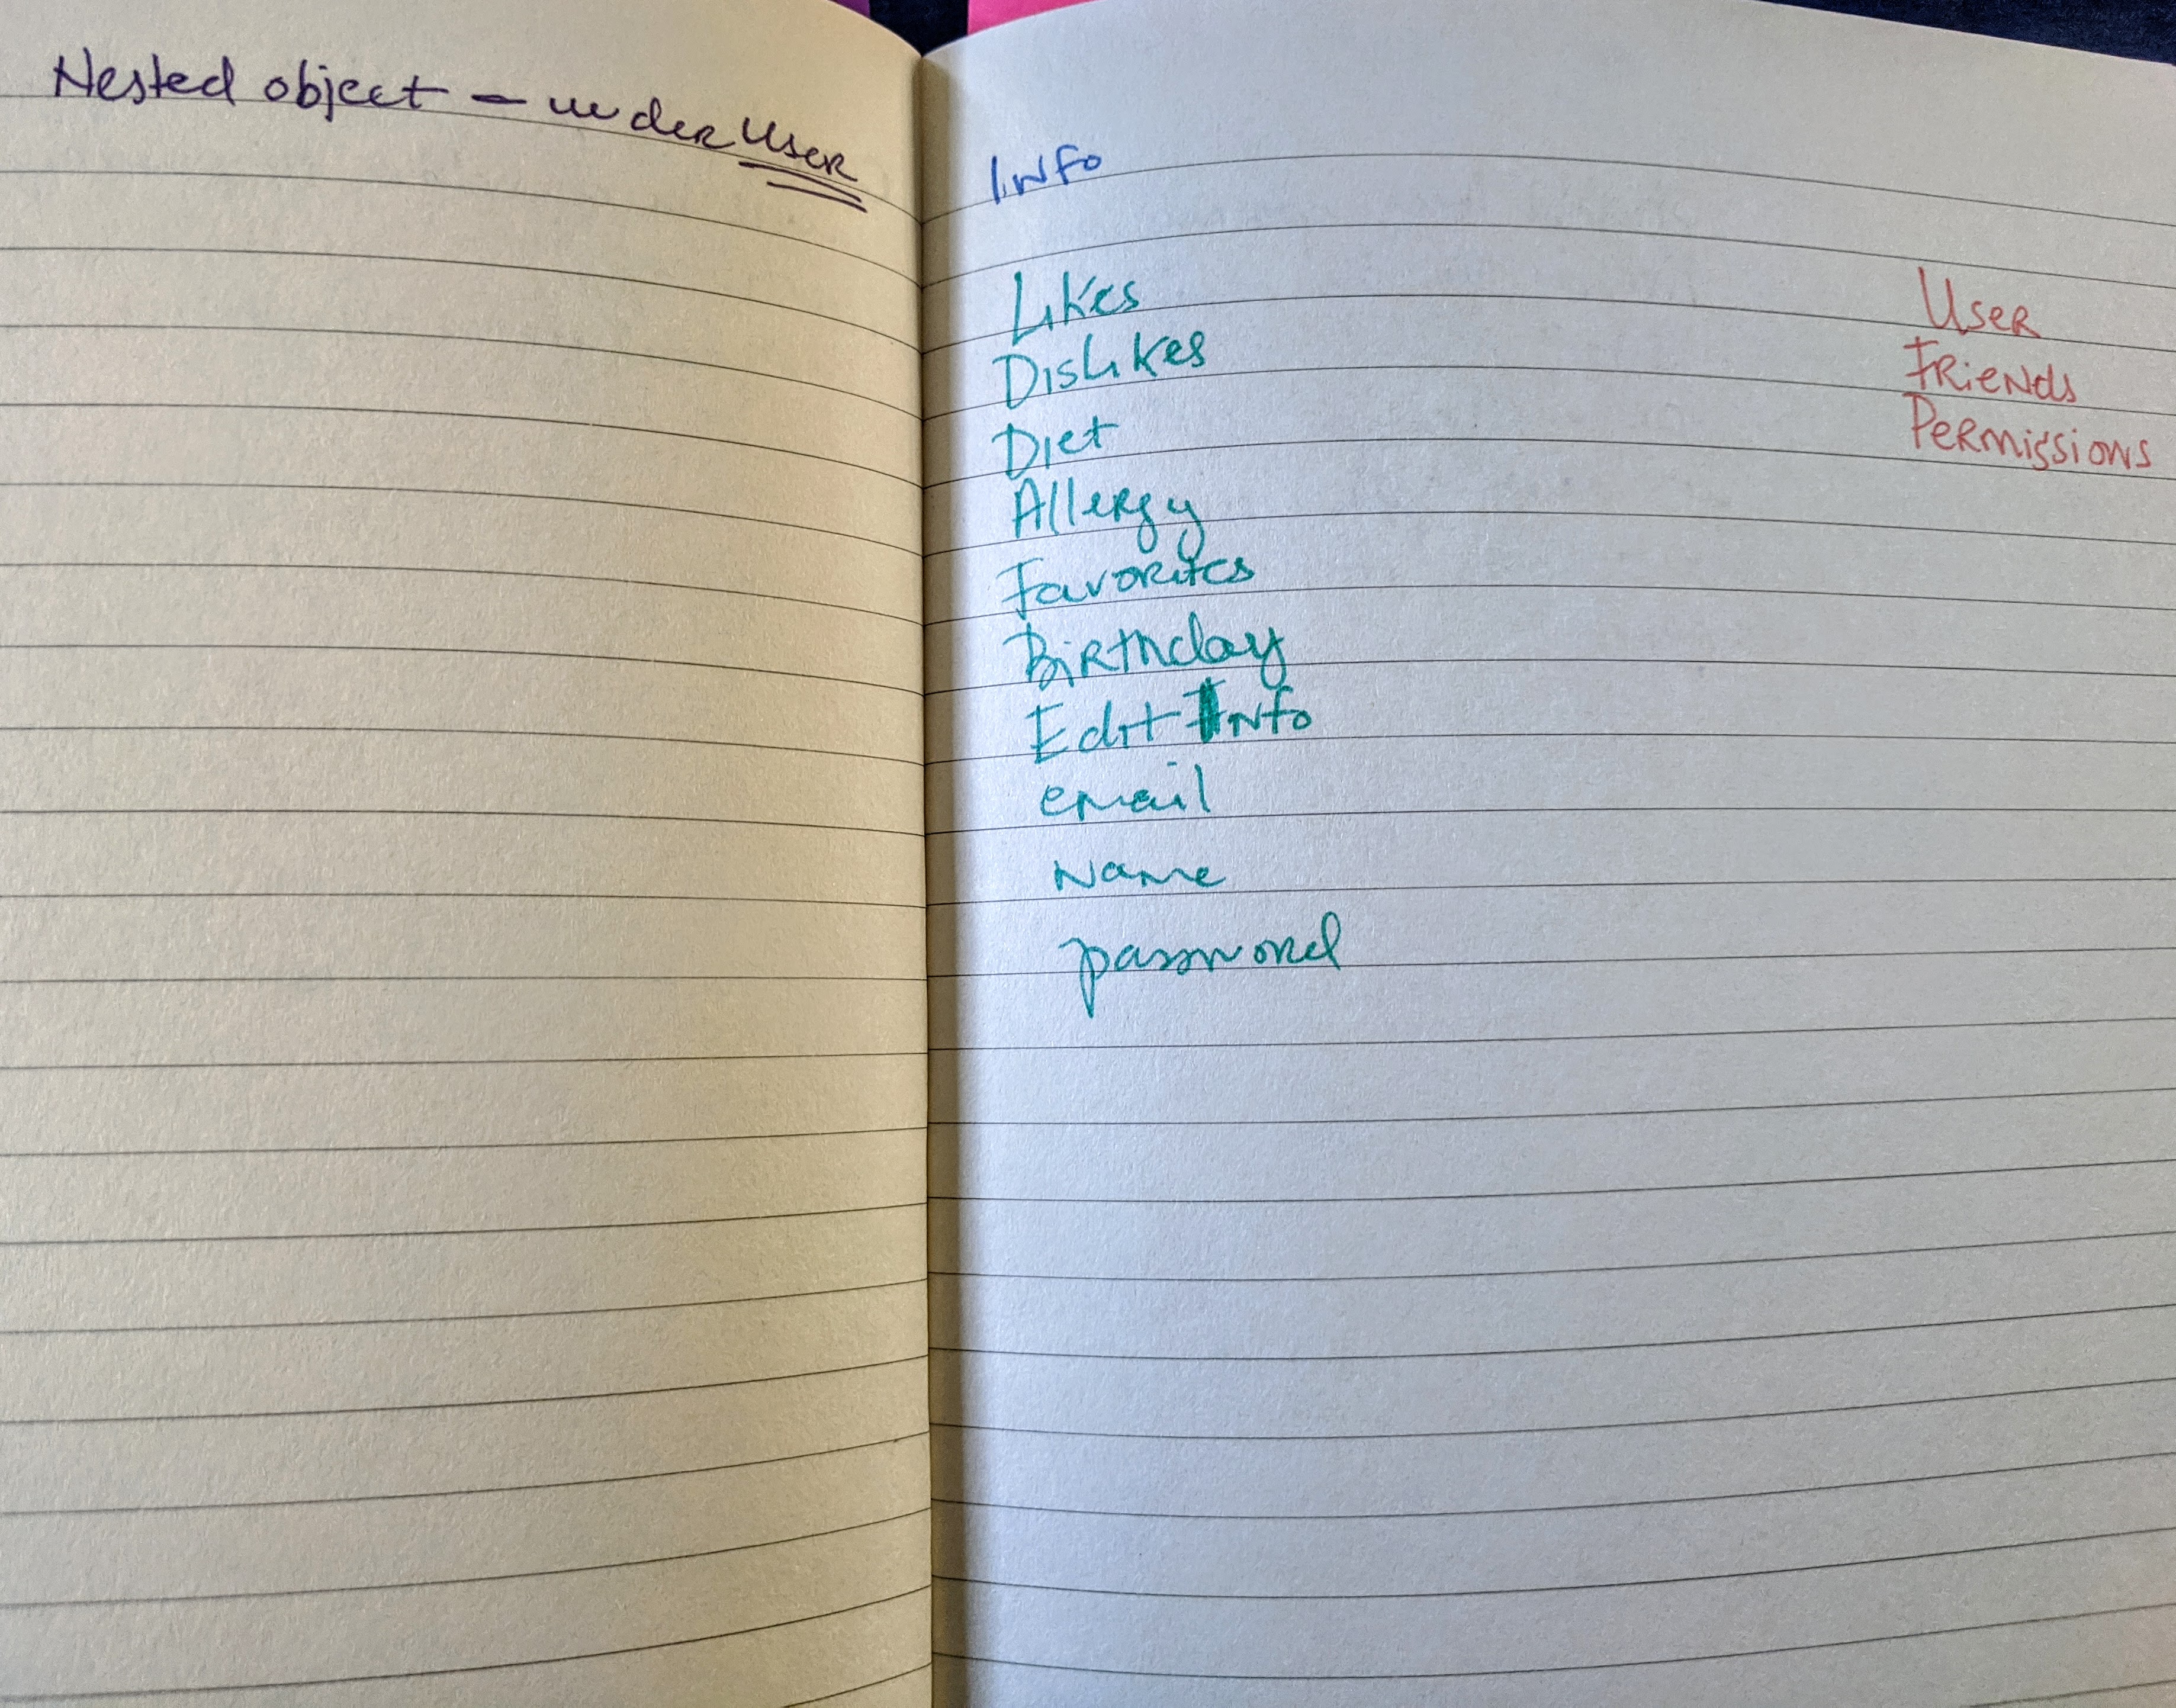 Nested object - under User
Info
Likes
Dislikes
Diet
Allergy
Favorites
Birthday
Edit Info
email
Name
password
User
Friends
Permissions